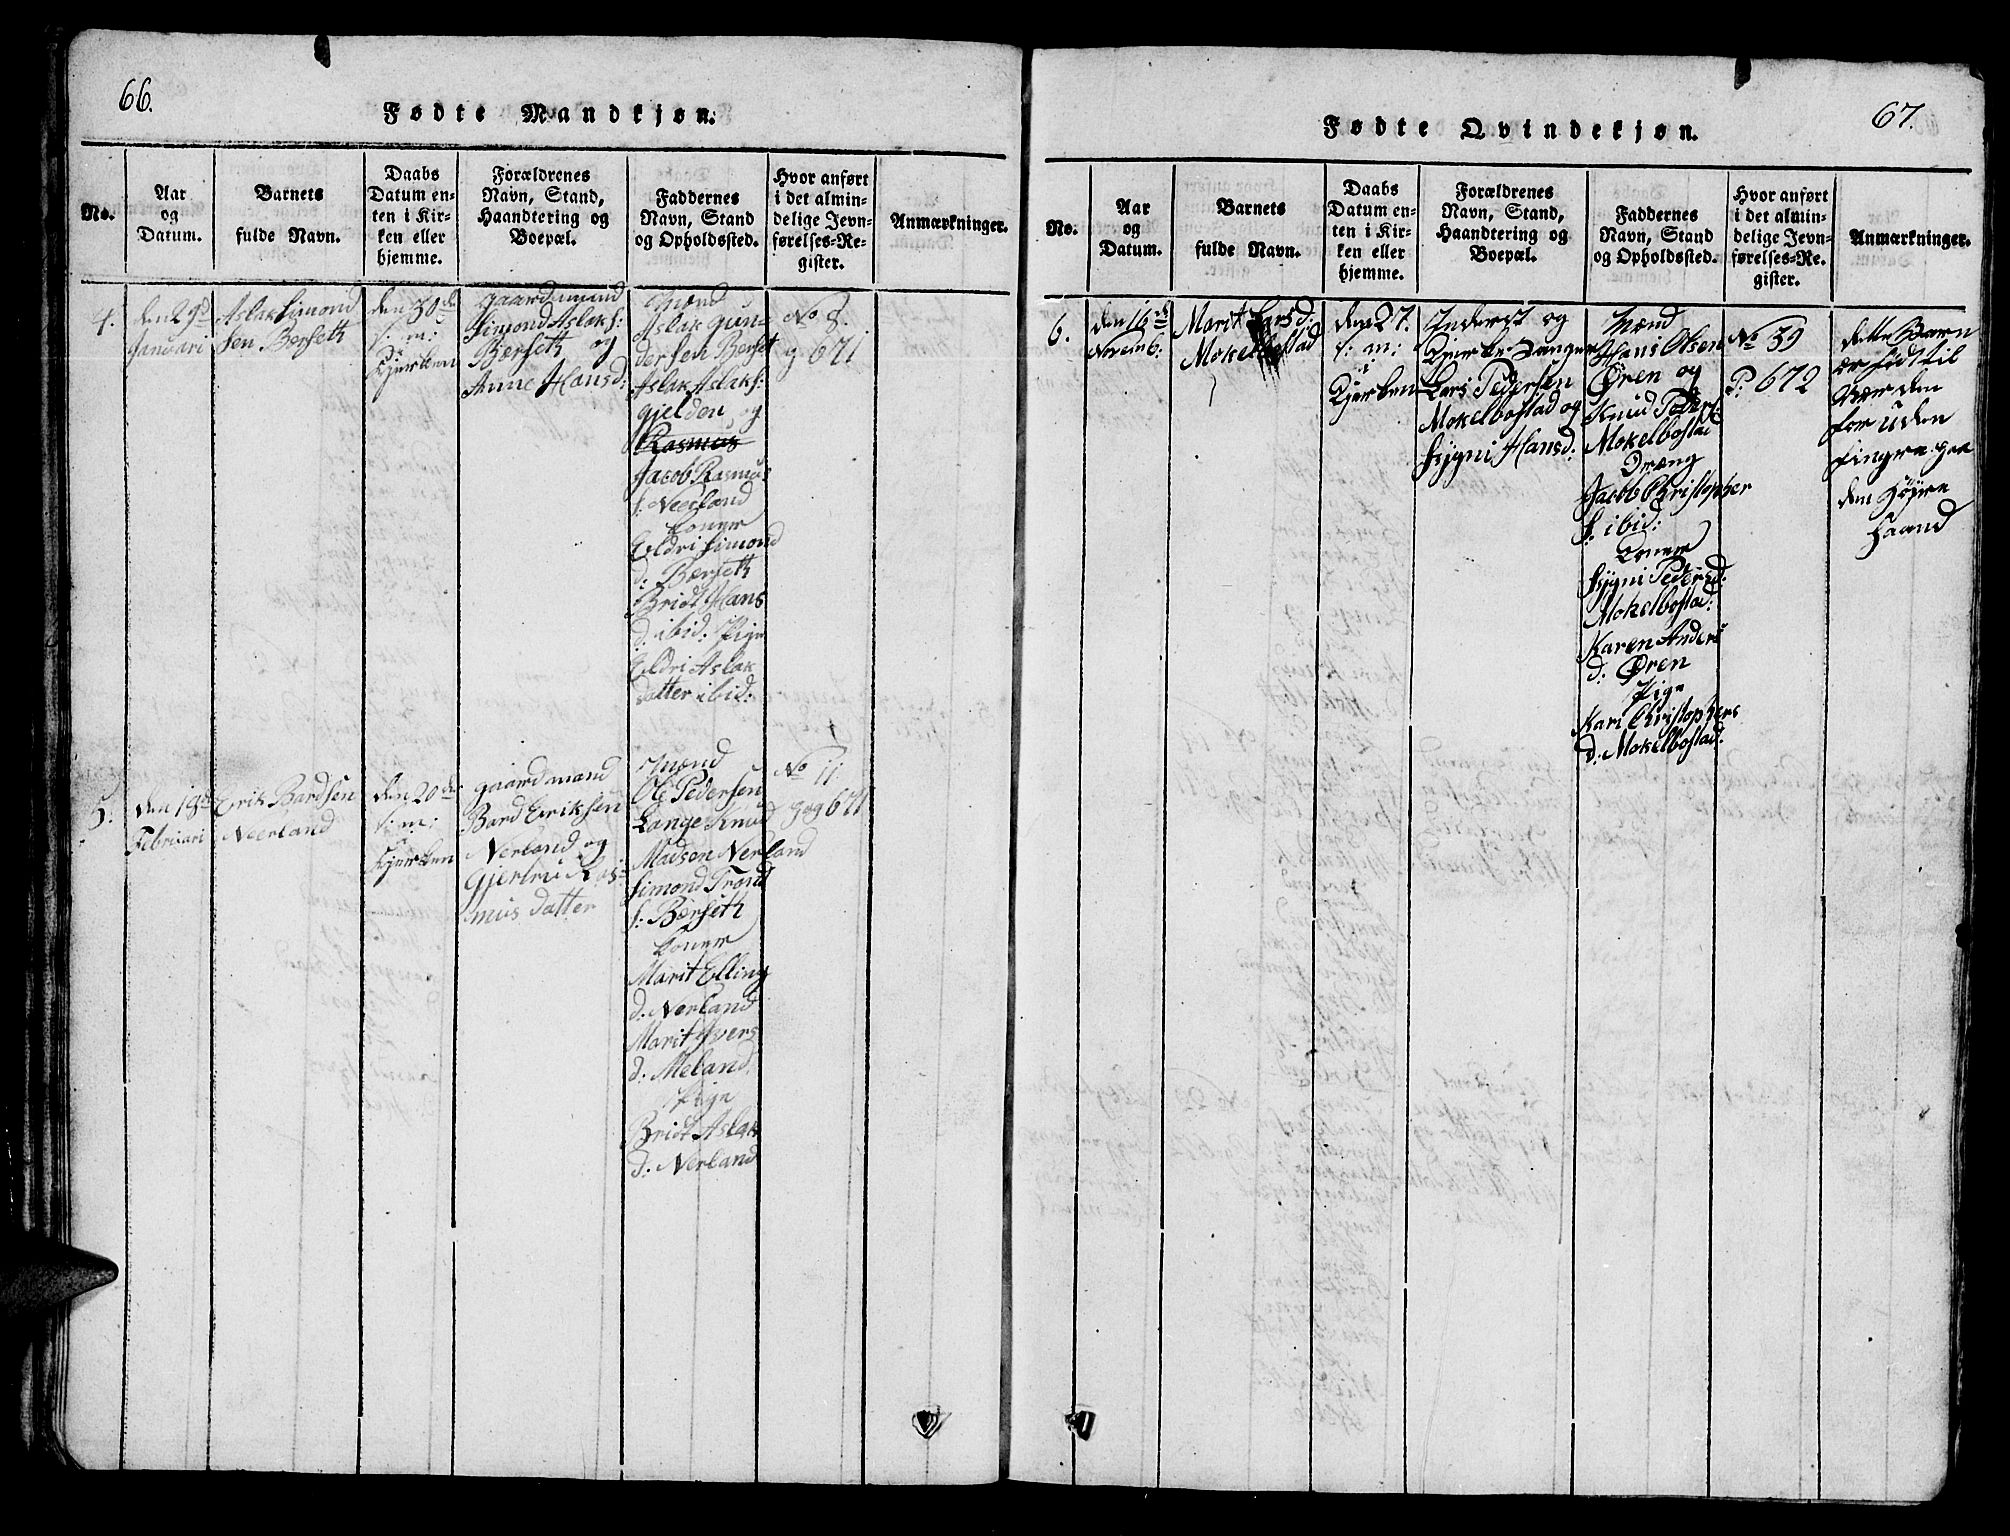 66.
Fødte Mandkjøn.
No.
Aar
og
Datum.
Barnets
fulde Navn.
Daabs
Datum en-
ten i Kir-
ken eller
hjemme.
Forældrenes
Navn, Stand,
Haandtering og
Boepæl.
Faddernes
Navn, Stand
og Opholdssted.
Hvor anført
i det almin-
delige Jevn-
førelses-Re-
gister.
Anmærkninger.
4.
den 29d
Januari
Aslak Simond
sen Bærseth
den 30de
s: m:
Kjerken
gaardmand
Simond Aslaks:
Bærseth og
Anne Hansd:
Mænd
Aslak Gun-
dersen Bærset
Aslak Aslaks:
gjelden og
Rasmus
Jacob Rasmus
s: Neerland
Koner
Eldri Simond
d: Bærseth
Bridt Hans
d: ibid: Pige
Eldri Aslak
datter ibid:
No 8.
g 671
5.
den 19d
Februari
Erik Bardsen
Neerland
den 20de
s: m:
Kjerken
gaardmand
Bard Eriksen
Nerland og
Gjertru Ras-
mus datter
Mænd
Ole Pedersen
Lange Knud
Madsen Nerland
Simond Trond
s: Bærseth
Koner
Marit Elling
d: Nerland
Marit Ivers
d: Meland
Pige
Bridt Aslak
d: Nerland
No 11.
gog 671
67.
Fødte Qvindekjøn.
No.
Aar
og
Datum.
Barnets
fulde Navn.
Daabs
Datum en-
ten i Kir-
ken eller
hjemme.
Forældrenes
Navn, Stand,
Haandtering og
Boepæl.
Faddernes
Navn, Stand
og Opholdssted.
Hvor anført
i det almin-
delige Jevn-
førelses-Re-
gister.
Anmærkninger.
6.
den 16de
Novemb:
Marit Larsd:
Mokelbostad
den 27.
s: m:
Kjerken
Inderst og
Kjerkesanger
Lars Pedersen
Mokelbostad og
Sygni Hansd:
Mænd
Hans Olsen
Øren og
Knud Peders:
Mokelbostad
Dræng
Jacob Christopher
s: ibid:
Koner
Sygni Pedersd:
Mokelbostad:
Karen Anders
d: Øren
Pige
Kari Christophers
d: Mokelbostad:
No 39
P: 672
dette Barn
er född til
Verden
foruden
fingre paa
den høyre
Haand